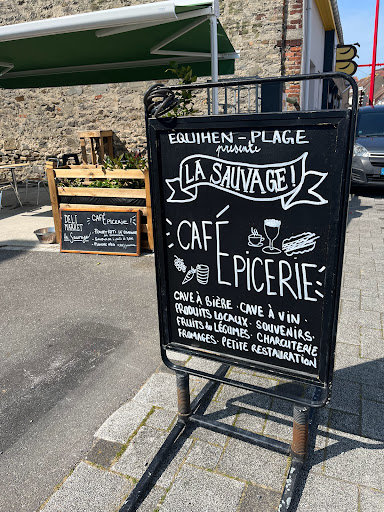 EQUIHEN - PLAGE
présente
LA SAUVAGE !
CAFÉ
ÉPICERIE
CAVE À BIÈRE · CAVE À VIN ·
PRODUITS LOCAUX · SOUVENIRS ·
FRUITS & LÉGUMES · CHARCUTERIE
FROMAGES · PETITE RESTAURATION
DELI
MARKET
la Sauvage
CAFÉ ÉPICERIE